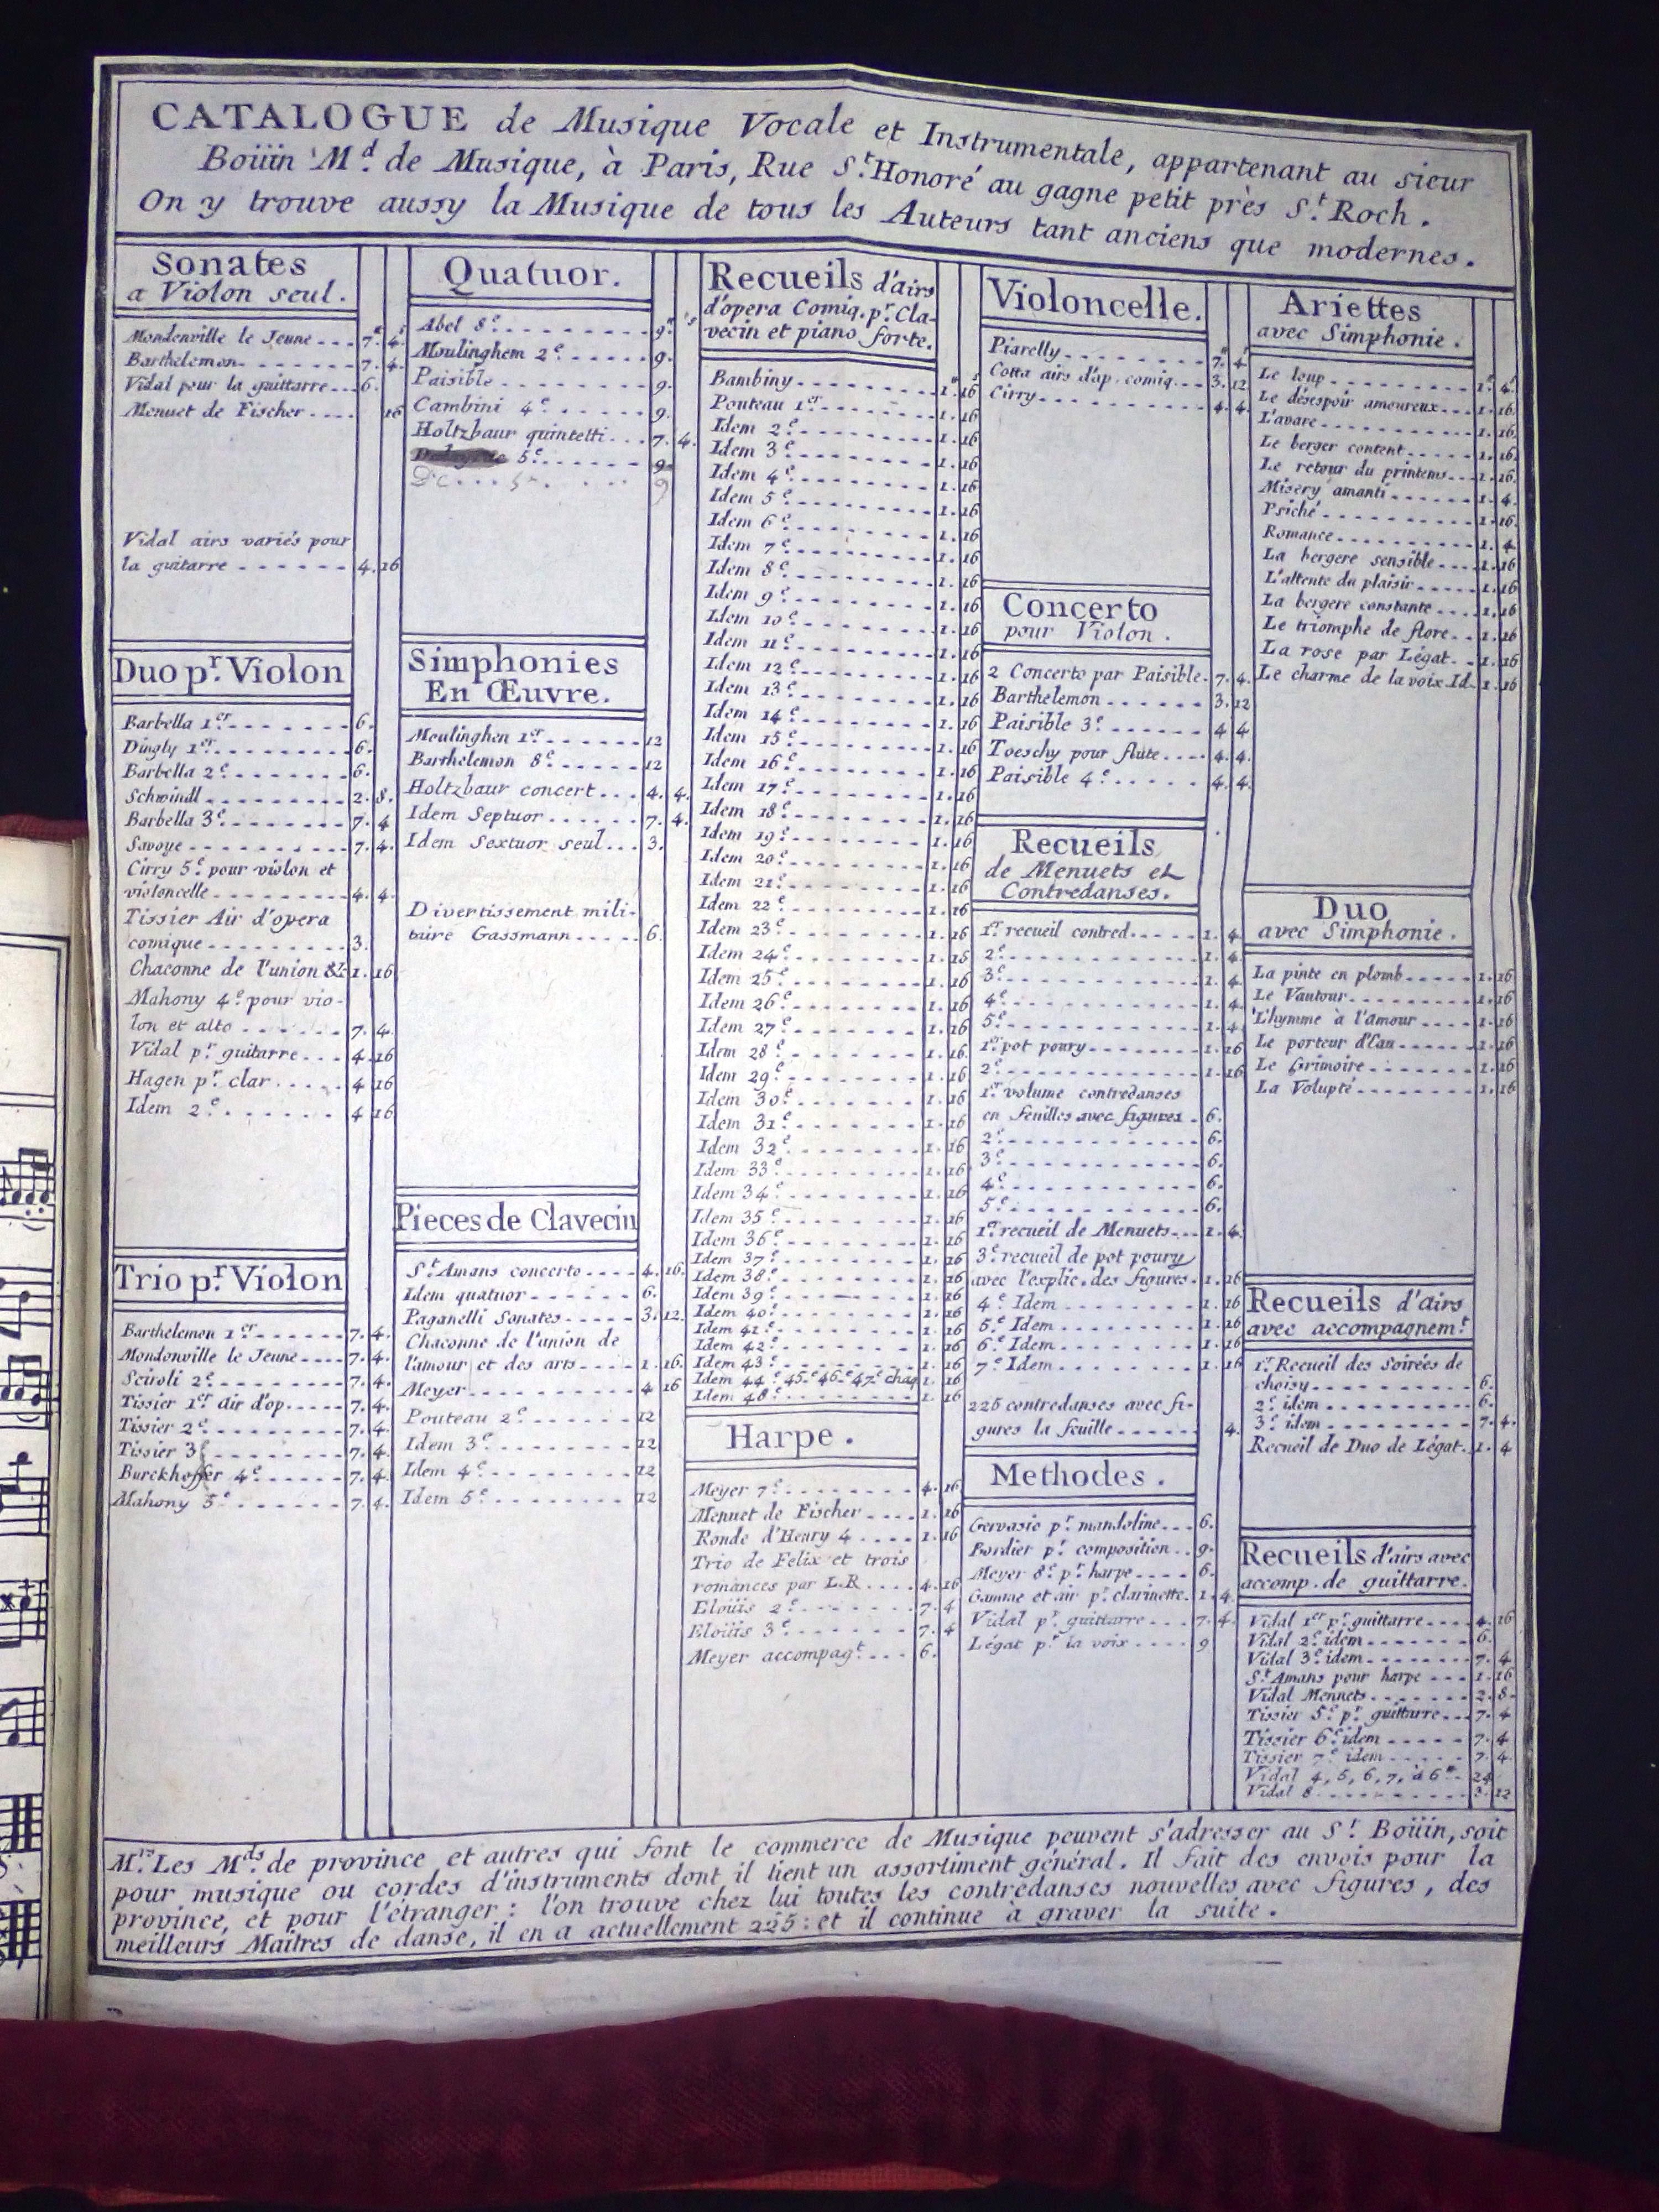 CATALOGUE de Musique Vocale et Instrumentale, appartenant au sieur
Boüin M.d de Musique, à Paris, Rue S.t Honoré au gagne petit près S.t Roch.
On y trouve aussy la Musique de tous les Auteurs tant anciens que modernes.
Sonates
a Violon seul.
Mondonville le Jeune 7.# 4.s
Barthelemon 7. 4.
Vidal pour la guittarre 6.
Menuet de Fischer 16
Vidal airs variés pour
la guitarre 4. 16
Duo p.r Violon
Barbella 1.er 6.
Dingly 1.er 6.
Barbella 2.e 6.
Schwindl 2. 8.
Barbella 3.e 7. 4
Savoye 7. 4.
Cirry 5.e pour violon et
violoncelle 4. 4.
Tissier Air d'opera
comique 3.
Chaconne de l'union &c. 1. 16
Mahony 4.e pour vio-
lon et alto 7. 4
Vidal p.r guitarre 4. 16
Hagen p.r clar 4 16
Idem 2.e 4 16
Trio p.r Violon
Barthelemon 1.er 7. 4.
Mondonville le Jeune 7. 4.
Sciroli 2.e 7. 4.
Tissier 1.er air d'op. 7. 4.
Tissier 2.e 7. 4.
Tissier 3.e 7. 4.
Burckhoffer 4.e 7. 4.
Mahony 3.e 7. 4.
Quatuor.
Abel 8.e 9.# s
Moulinghem 2.e 9.
Paisible 9.
Cambini 4.e 9.
Holtzbaur quintetti 7. 4.
5.e 9
9
Simphonies
En Œuvre.
Moulinghen 1.er 12
Barthelemon 8.e 12
Holtzbaur concert 4. 4.
Idem Septuor 7. 4.
Idem Sextuor seul 3.
Divertissement mili-
taire Gassmann 6.
Pieces de Clavecin
S.t Amans concerto 4. 16.
Idem quatuor 6.
Paganelli Sonates 3. 12.
Chaconne de l'union de
l'amour et des arts 1. 16.
Meyer 4 16
Pouteau 2.e 12
Idem 3.e 12
Idem 4.e 12
Idem 5.e 12
Recueils d'airs
d'opera Comiq. p.r Cla-
vecin et piano forte.
Bambiny 1.# 16s
Pouteau 1.er 1. 16
Idem 2.e 1. 16
Idem 3.e 1. 16
Idem 4.e 1. 16
Idem 5.e 1. 16
Idem 6.e 1. 16
Idem 7.e 1. 16
Idem 8.e 1. 16
Idem 9.e 1. 16
Idem 10.e 1. 16
Idem 11.e 1. 16
Idem 12.e 1. 16
Idem 13.e 1. 16
Idem 14.e 1. 16
Idem 15.e 1. 16
Idem 16.e 1. 16
Idem 17.e 1. 16
Idem 18.e 1. 16
Idem 19.e 1. 16
Idem 20.e 1. 16
Idem 21.e 1. 16
Idem 22.e 1. 16
Idem 23.e 1. 16
Idem 24.e 1. 16
Idem 25.e 1. 16
Idem 26.e 1. 16
Idem 27.e 1. 16
Idem 28.e 1. 16.
Idem 29.e 1. 16
Idem 30.e 1. 16
Idem 31.e 1. 16
Idem 32.e 1. 16
Idem 33.e 1. 16
Idem 34.e 1. 16
Idem 35.e 1. 16
Idem 36.e 1. 16
Idem 37.e 1. 16
Idem 38.e 1. 16
Idem 39.e 1. 16
Idem 40.e 1. 16
Idem 41.e 1. 16
Idem 42.e 1. 16
Idem 43.e 1. 16
Idem 44.e 45.e 46.e 47.e chaq 1. 16
Idem 48.e 1. 16
Harpe.
Meyer 7.e 4. 16
Menuet de Fischer 1. 16
Ronde d'Henry 4 1. 16
Trio de Felix et trois
romances par L.R. 4. 16
Eloüis 2.e 7. 4
Eloüis 3.e 7. 4
Meyer accompag.t 6.
Violoncelle.
Piarelly 7.# 4s
Cotta airs d'op. comiq. 3. 12
Cirry 4. 4.
Concerto
pour Violon.
2 Concerto par Paisible 7. 4.
Barthelemon 3. 12
Paisible 3.e 4 4
Toeschy pour flute 4. 4.
Paisible 4.e 4. 4.
Recueils
de Menuets et
Contredanses.
1.er recueil contred. 1. 4.
2.e 1. 4.
3.e 1. 4
4.e 1. 4.
5.e 1. 4
1.er pot poury 1. 16
2.e 1. 16
1.er volume contredanses
en feuilles avec figures 6.
2.e 6.
3.e 6.
4.e 6.
5.e 6.
1.er recueil de Menuets 1. 4.
3.e recueil de pot poury
avec l'explic. des figures 1. 16
4.e Idem 1. 16
5.e Idem 1. 16
6.e Idem 1. 16
7.e Idem 1. 16
225 contredanses avec fi-
gures la feuille 4.
Methodes.
Gervasio p.r mandoline 6.
Bordier p.r composition 9.
Meyer 8.e p.r harpe 6.
Gamme et air p.r clarinette 1. 4.
Vidal p.r guittarre 7. 4.
Légat p.r la voix 9
Ariettes
avec Simphonie.
Le loup 1.# 4s
Le désespoir amoureux 1. 16.
L'avare 1. 16.
Le berger content 1. 16.
Le retour du printems 1. 16.
Misery amanti 1. 4.
Psiché 1. 16.
Romance 1. 4.
La bergere sensible 1. 16
L'attente du plaisir 1. 16
La bergere constante 1. 16
Le triomphe de flore 1. 16
La rose par Légat 1. 16
Le charme de la voix Id. 1. 16
Duo
avec Simphonie.
La pinte en plomb 1. 16
Le Vantour 1. 16
L'hymme à l'amour 1. 16
Le porteur d'Eau 1. 16
Le Grimoire 1. 16
La Volupté 1. 16
Recueils d'airs
avec accompagnem.t
1.er Recueil des Soirées de
choisy 6.
2.e idem 6.
3.e idem 7. 4.
Recueil de Duo de Légat 1. 4
Recueils d'airs avec
accomp. de guittarre.
Vidal 1.er p.r guittarre 4. 16
Vidal 2.e idem 6.
Vidal 3.e idem 7. 4
S.t Amans pour harpe 1. 16
Vidal Menuets 2. 8.
Tissier 5.e p.r guittarre 7. 4
Tissier 6.e idem 7. 4
Tissier 7.e idem 7. 4.
Vidal 4, 5, 6, 7, à 6# 24
Vidal 8 3. 12
M.rs Les M.ds de province et autres qui font le commerce de Musique peuvent s'adresser au S.r Boüin, soit
pour musique ou cordes d'instruments dont il tient un assortiment général. Il fait des envois pour la
province, et pour l'étranger: l'on trouve chez lui toutes les contredanses nouvelles avec figures, des
meilleurs Maitres de danse, il en a actuellement 225: et il continue à graver la suite.